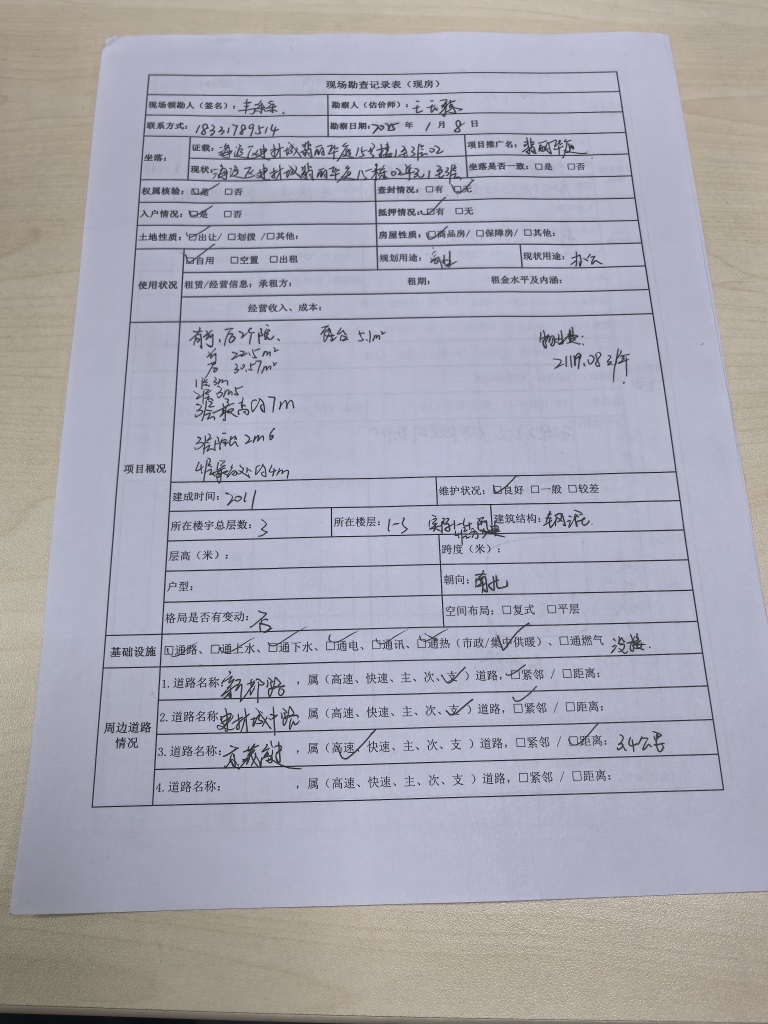 现场勘查记录表（现房）
现场领勘人（签名）： 勘察人（估价师）：
联系方式：18331789514 勘察日期：2025 年 1 月 8 日
坐落： 证载：海淀区建材城翡丽华庭15号楼1至3层02 项目推广名：翡丽华庭
现状：海淀区建材城翡丽华庭15栋02单元1至3层 坐落是否一致：□是 □否
权属核验：☑是 □否 查封情况：□有 ☑无
入户情况：☑是 □否 抵押情况：☑有 □无
土地性质：☑出让/ □划拨 /□其他： 房屋性质：☑商品房/ □保障房/ □其他：
使用状况 ☑自用 □空置 □出租 规划用途：商业 现状用途：办公
租赁/经营信息：承租方： 租期： 租金水平及内涵：
经营收入、成本：
项目概况
有前，后2个院. 露台 5.1m² 物业费：
前 22.5m² 2119.08元/年.
后 30.57m²
1层3m
2层3m5
3层最高约7m
3层 2m6
4层最高处约4m
建成时间：2011 维护状况：☑良好 □一般 □较差
所在楼宇总层数：3 所在楼层：1-3 实际1-4 建筑结构：钢混
层高（米）： 跨度（米）：
户型： 朝向：南北
格局是否有变动：否 空间布局：□复式 □平层
基础设施 ☑通路、☑通上水、☑通下水、☑通电、☑通讯、☑通热（市政/集中供暖）、□通燃气 没接.
周边道路情况
1.道路名称：新都路 ，属（高速、快速、主、次、支✓）道路，☑紧邻 / □距离：
2.道路名称：建材城中路 属（高速、快速、主、次、支✓）道路，☑紧邻 / □距离：
3.道路名称：京藏高速 ，属（高速✓、快速、主、次、支 ）道路，□紧邻 / ☑距离：3.4公里
4.道路名称： ，属（高速、快速、主、次、支 ）道路，□紧邻 / □距离：